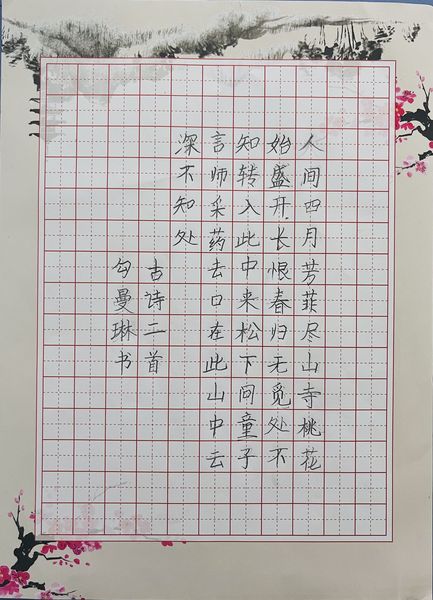 人间四月芳菲尽山寺桃花
始盛开长恨春归无觅处不
知转入此中来松下问童子
言师采药去口在此山中云
深不知处
古诗二首
勾曼琳书